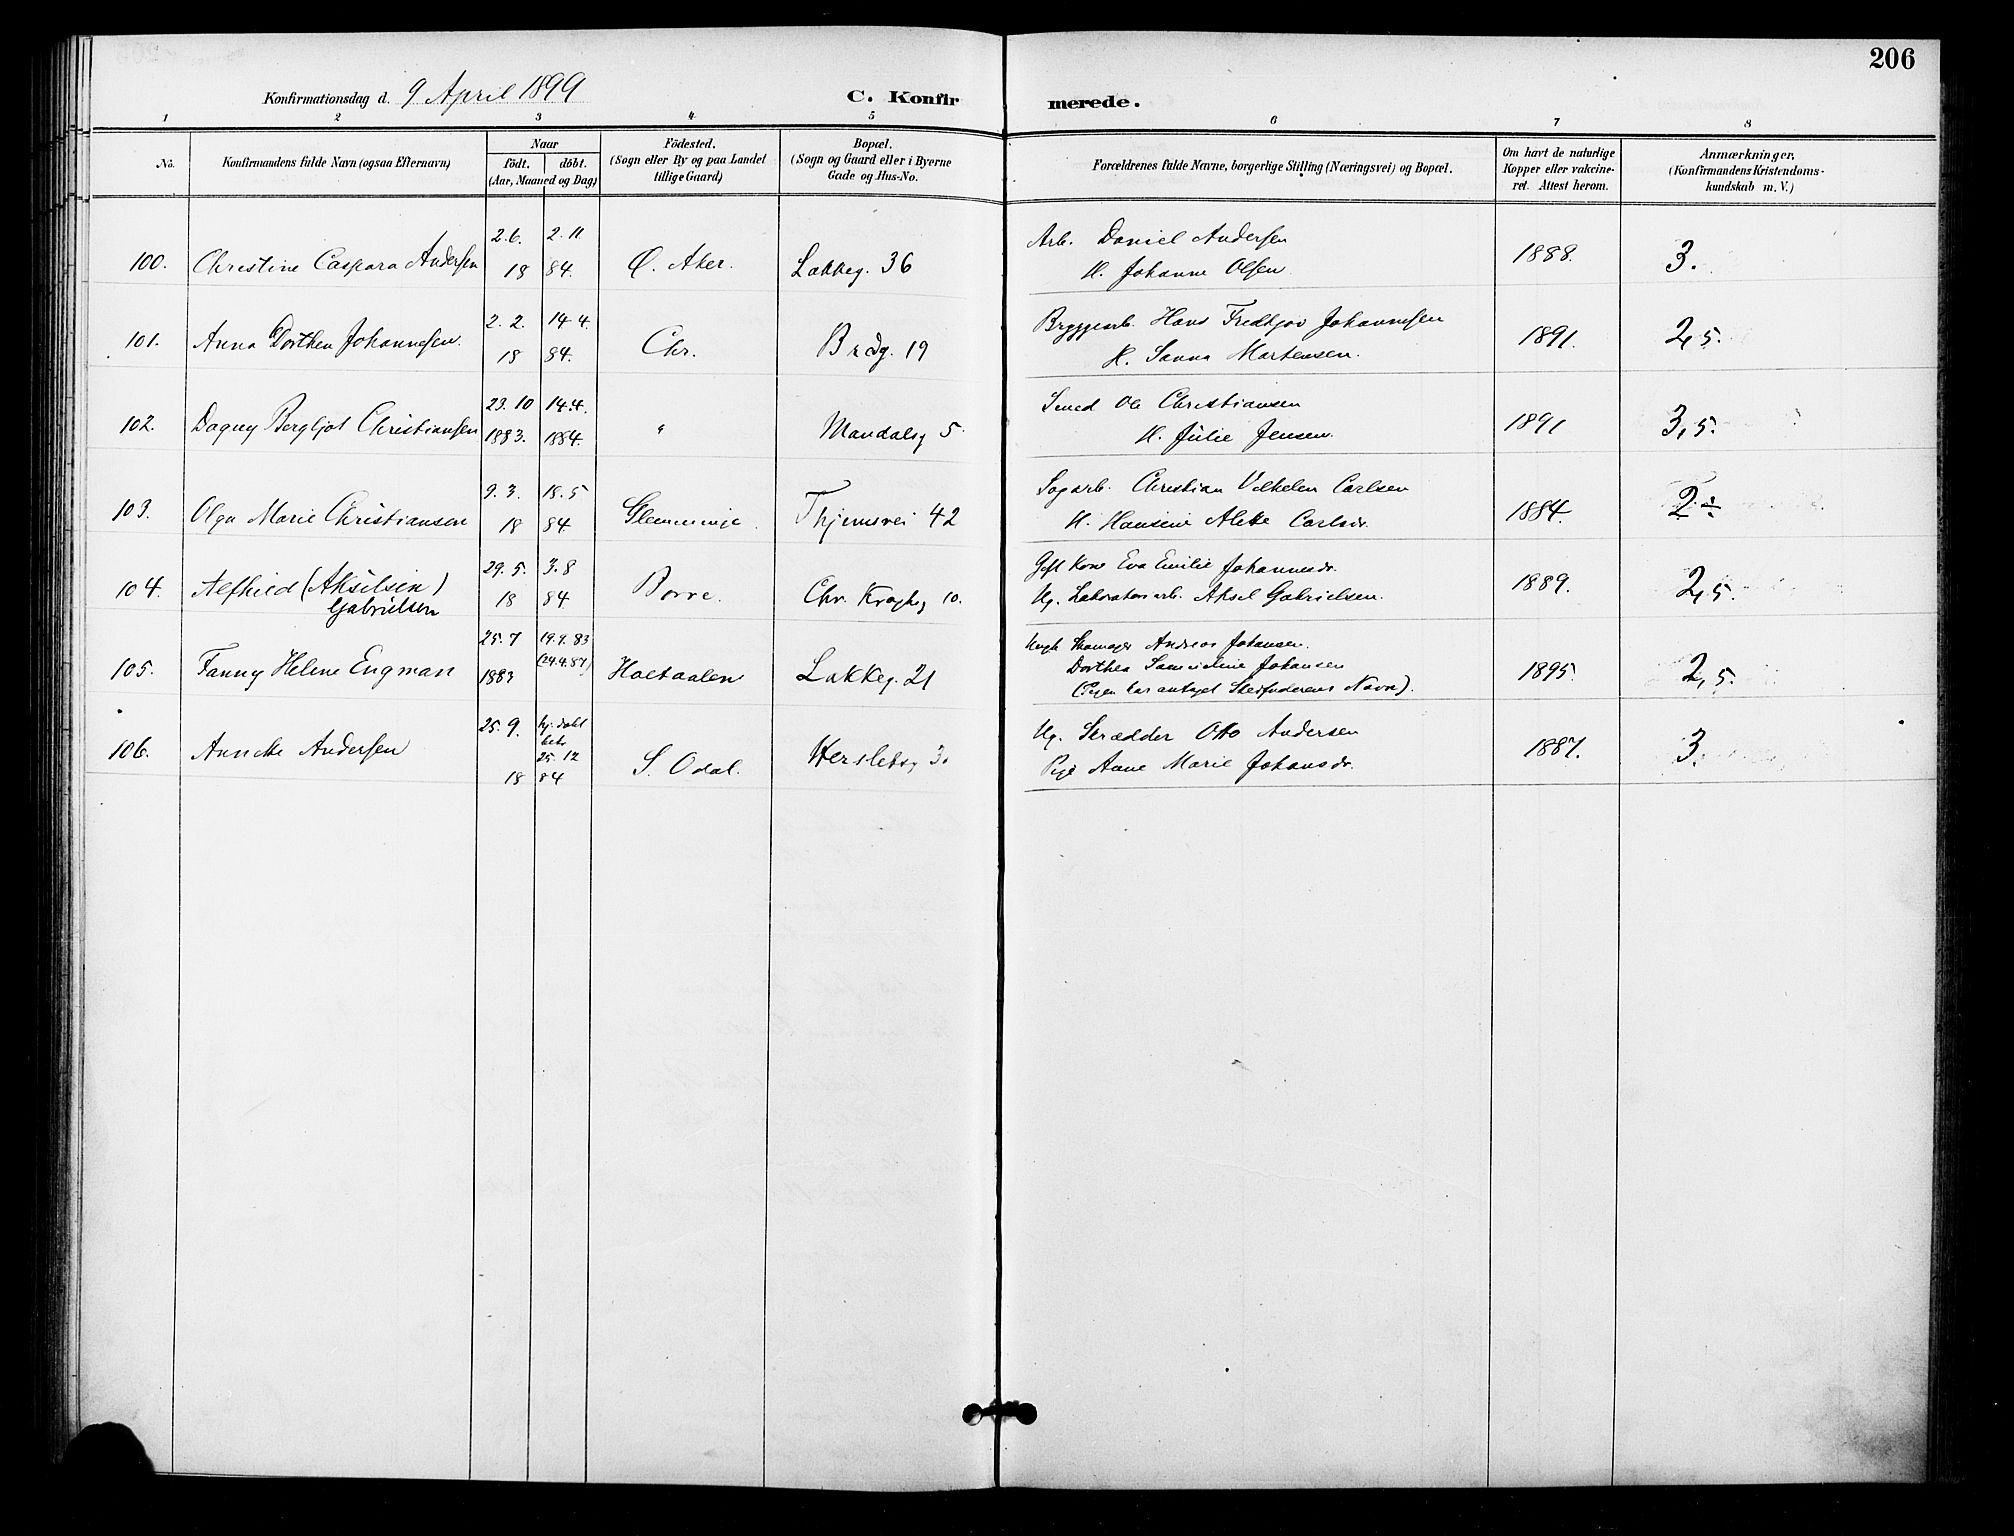 206
Konfirmationsdag d. 9 April 1899
C. Konfirmerede.
1 2 3 4 5 6 7 8
No.
Konfirmandens fulde Navn (ogsaa Efternavn)
Naar
födt. döbt.
(Aar, Maaned og Dag)
Födested.
(Sogn eller By og paa Landet
tillige Gaard)
Bopæl.
(Sogn og Gaard eller i Byerne
Gade og Hus-No.
Forældrenes fulde Navne, borgerlige Stilling (Næringsvei) og Bopæl.
Om havt de naturlige
Kopper eller vakcine-
ret. Attest herom.
Anmærkninger,
(Konfirmandens Kristendoms-
kundskab m. V.)
2.6. 2.11 Arb. Daniel Andersen
100. Christine Caspara Andersen 18 84. Ø. Aker. Lakkeg. 36 H. Johanne Olsen 1888. 3.
2.2. 14.4. Bryggearb. Hans Fredtjov Johannesen
101. Anna Dorthea Johannesen. 18 84. Chr. Bredg. 19 H. Sanna Martensen. 1891. 2,5.
23.10 14.4. Smed Ole Christiansen
102. Dagny Bergljot Christiansen 1883. 1884. " Mandalsg 5 H. Julie Jensen. 1891 3,5.
9.3. 18.5 Sagarb. Christian Vilhelm Carlsen
103. Olga Marie Christiansen 18 84. Glemminge. Thjemsvei 42 H. Hansine Alette Carlsdr. 1884. 2÷
29.5. 3.8 Gift Kone Eva Emilie Johannesdr.
104. Alfhild (Akselsen) 18 84. Borre. Chr. Kroghsg 10. Ug. Laboratorarb. Aksel Gabrielsen. 1889. 2,5.
Gabrielsen
25.7 19.9.83 Andreas Johansen.
(24.4.87) Dorthea Johansen
105. Fanny Helene Engman 1883 Holtaalen Lakkeg. 21 (Pigen har antaget Stedfaderens Navn). 1895. 2,5.
25.9. hj. døbt Ug. Skrædder Otto Andersen
bekr
25.12
106. Annette Andersen 18 84 S. Odal. Herslebsg 3. Pige Anne Marie Johansdr. 1887. 3.